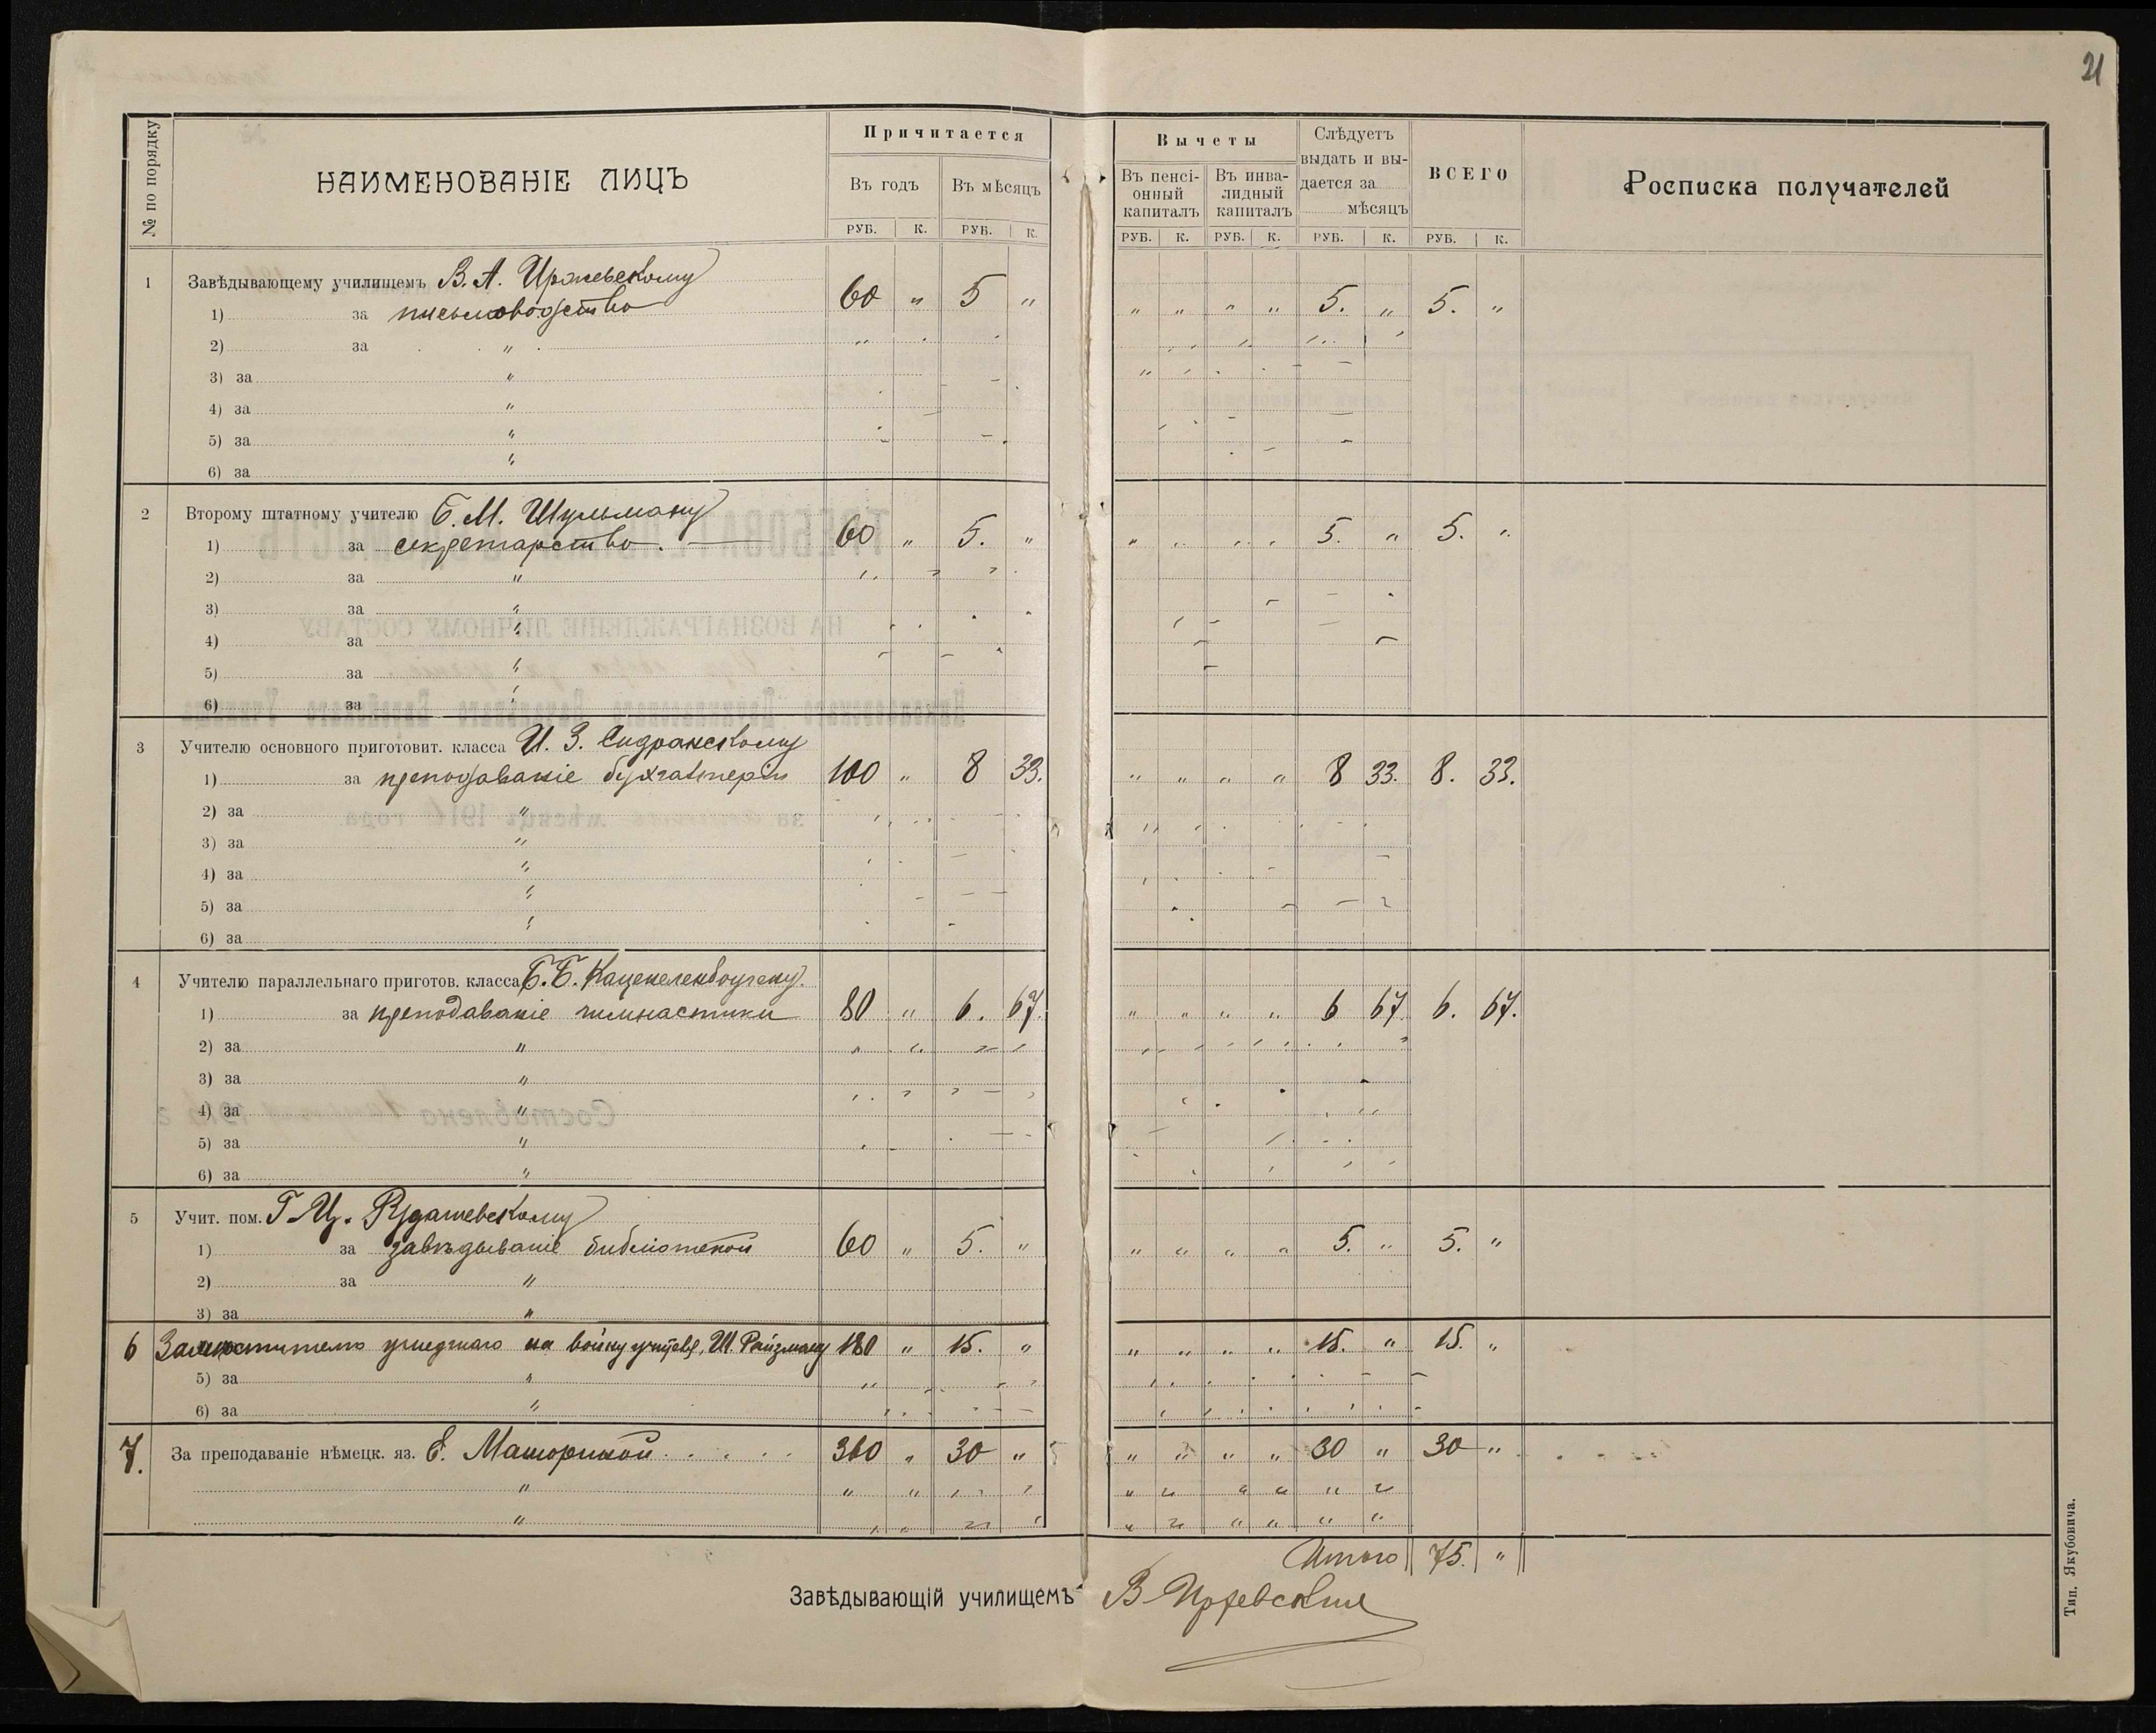 21
№ по порядку
НАИМЕНОВАНІЕ ЛИЦЪ
Причитается
Въ годъ Въ мѣсяцъ
РУБ. К. РУБ. К.
Вычеты
Въ пенсі-онный капиталъ
Въ инва-лидный капиталъ
Слѣдуетъ выдать и вы-дается за мѣсяцъ
ВСЕГО
Росписка получателей
РУБ. К. РУБ. К. РУБ. К. РУБ. К.
1 Завѣдывающему училищемъ В. А. Иржевскому
1) за письмоводство 60 " 5 " " " " " 5. " 5. "
2) за "
3) за "
4) за "
5) за "
6) за "
2 Второму штатному учителю Б. М. Шульману
1) за секретарство. 60 " 5. " " " " " 5. " 5. "
2) за "
3) за "
4) за "
5) за "
6) за "
3 Учителю основного приготовит. класса И. З.
1) за преподаваніе бухгалтеріи 100 " 8 33. " " " " 8 33. 8. 33.
2) за "
3) за "
4) за "
5) за "
6) за "
4 Учителю параллельнаго приготов. класса Б. Б. Каценеленбоугену.
1) за преподаваніе гимнастики 80 " 6. 67. " " " " 6 67. 6. 67.
2) за "
3) за "
4) за "
5) за "
6) за "
5 Учит. пом. Г. Ц. Рудашевскому
1) за завѣдываніе библіотекой 60 " 5. " " " " " 5. " 5. "
2) за "
3) за "
6 Заместителю ушедшаго на войну учителя, Ш. Райзману 180 " 15. " " " " " 15. " 15. "
5) за "
6) за "
7. За преподаваніе нѣмецк. яз. Е. Машориной 360 " 30 " " " " " 30 " 30 "
"
"
Итого 75. "
Завѣдывающій училищемъ В Иржевскій
Тип. Якубовича.